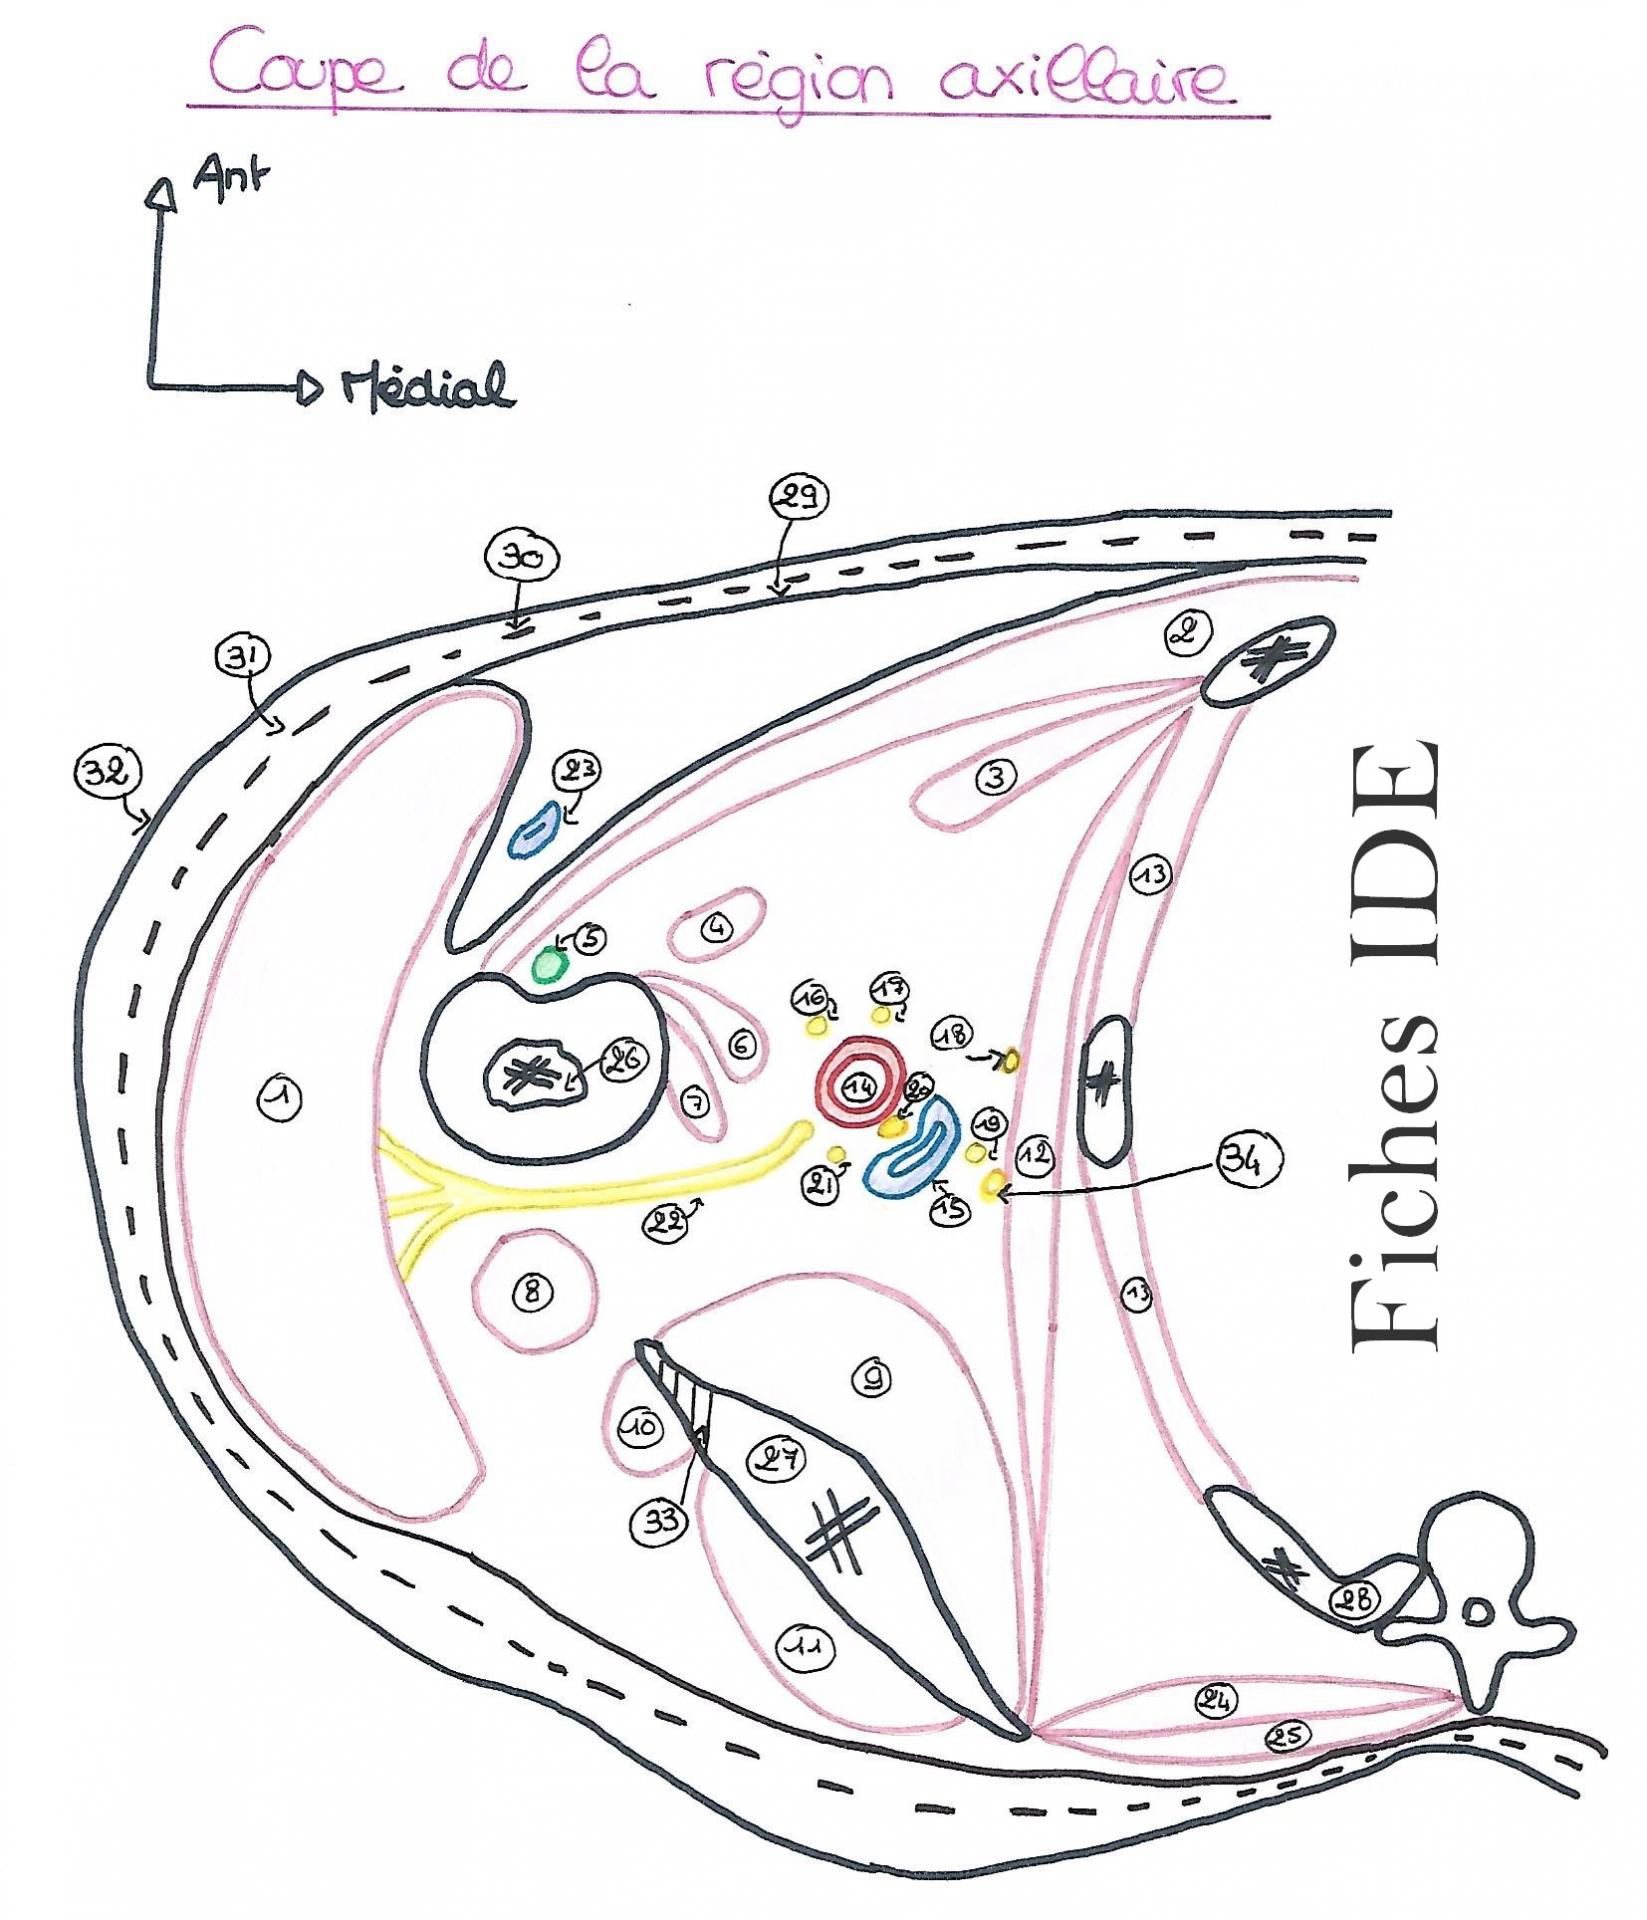 Coupe de la région axillaire
Ant
Médial
29
30
31
2
32
23
3
13
5
4
16
17
18
26
6
14
20
1
7
19
12
34
21
22
15
8
13
9
10
27
33
28
11
24
25
Fiches IDE